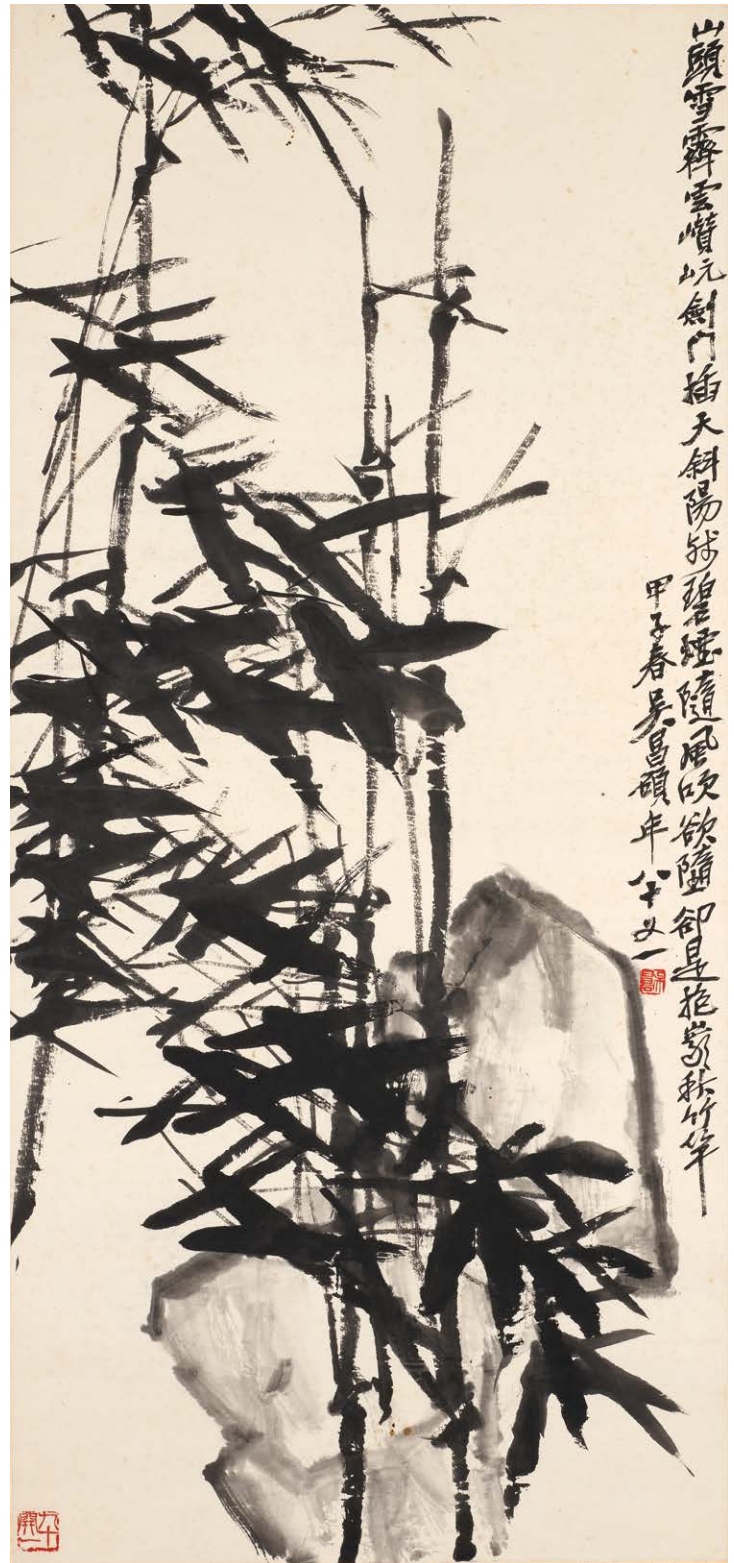 山頭雪霽雲巑岏劍門插天斜陽殘碧烟隨風吹欲墮卻是抱嵗秋竹竿
甲子春吳昌碩年八十又一